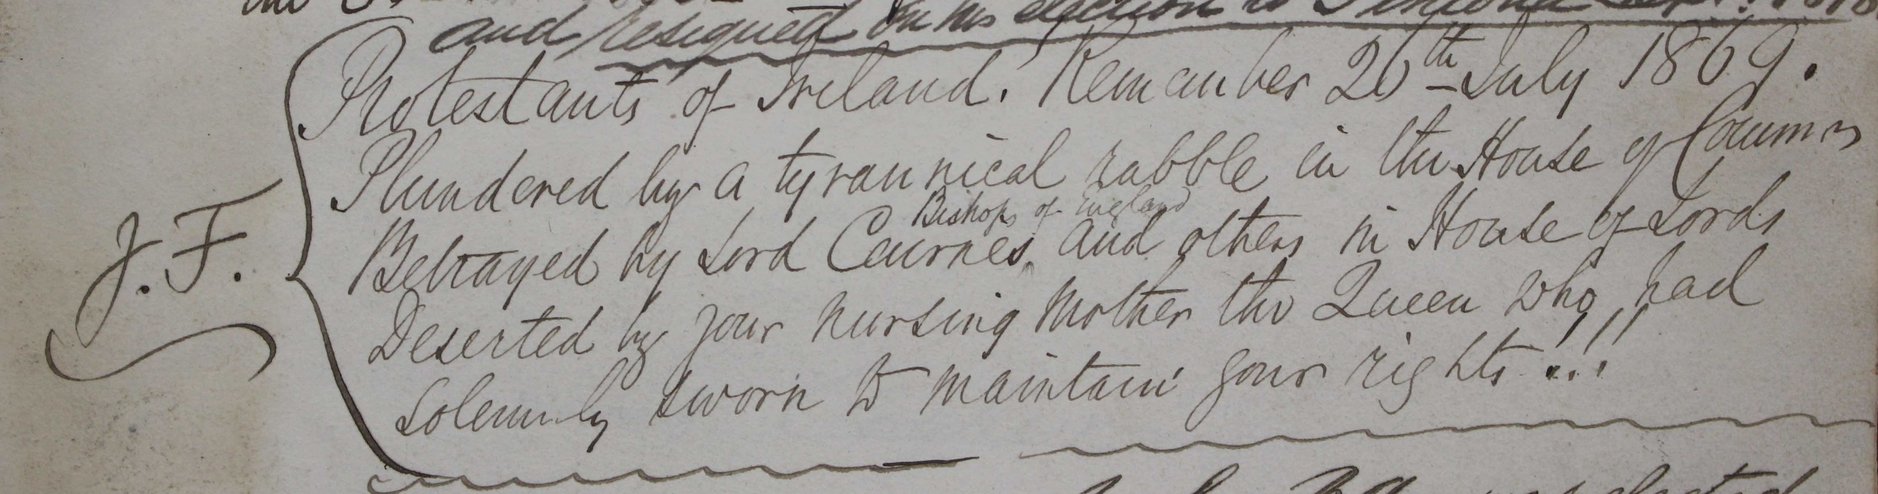 and resigned on his election to
Protestants of Ireland. Remember 26th July 1869.
Plundered by a tyrannical rabble in the House of Commns
Bishops of England
Betrayed by Lord Cairnes, and others in House of Lords
Deserted by your nursing Mother the Queen who had
solemnly sworn to maintain your rights!!!
J.F.
elected